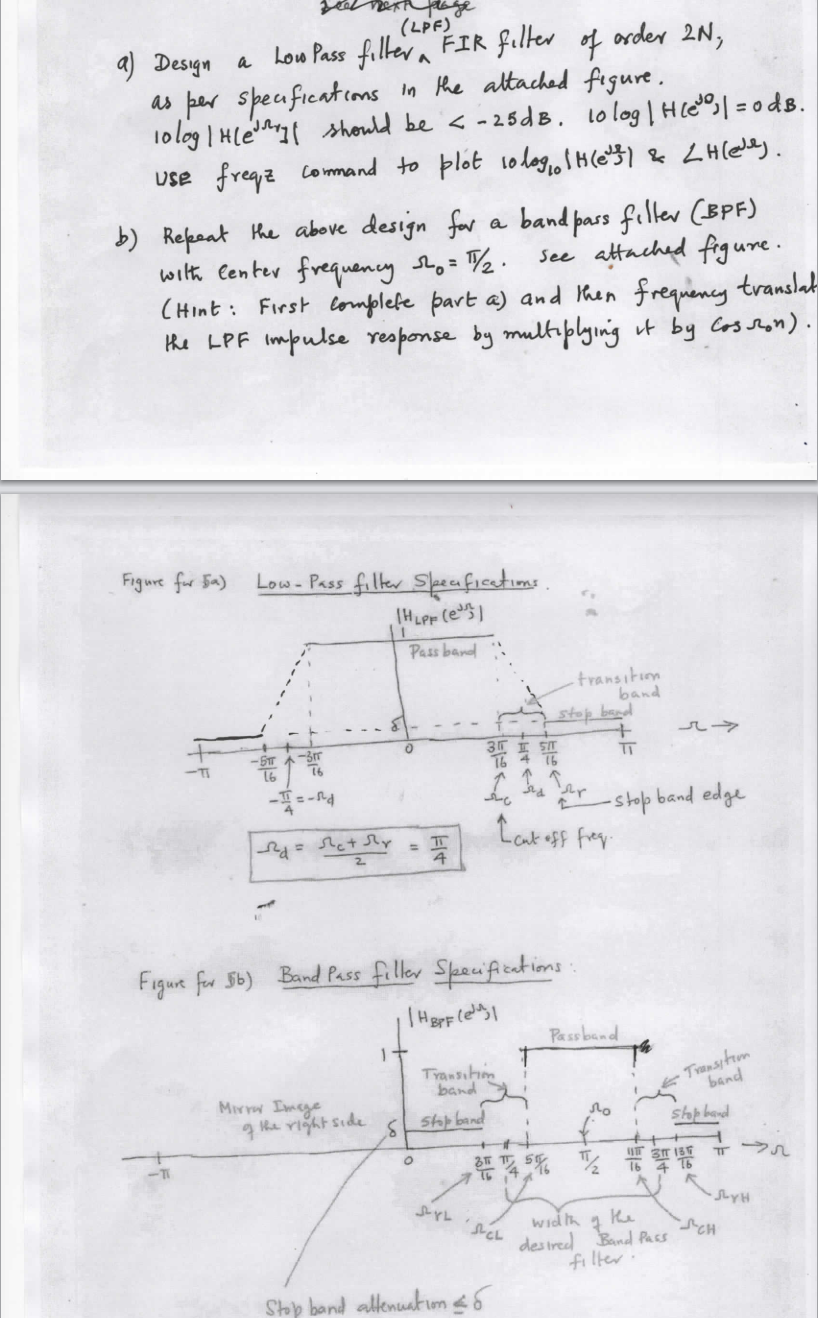 see next page
(LPF)
a) Design a Low Pass filter ‸ FIR filter of order 2N,
as per specifications in the attached figure.
10 log |H(e^{jΩr})| should be < -25dB. 10 log |H(e^{j0})| = 0 dB.
USE freqz command to plot 10 log₁₀ |H(e^{jΩ})| & ∠H(e^{jΩ}).
b) Repeat the above design for a bandpass filter (BPF)
with center frequency Ω₀ = π/2. see attached figure.
(Hint: First complete part a) and then frequency translat
the LPF impulse response by multiplying it by Cos Ω₀n).
Figure for 5a) Low-Pass filter Specifications.
|H_LPF(e^{jΩ})|
1
Pass band
transition
band
stop band
δ
Ω →
-π -5π/16 -3π/16 0 3π/16 π/4 5π/16 π
-π/4 = -Ωd
Ωc Ωd Ωr
stop band edge
cut off freq.
Ωd = (Ωc + Ωr)/2 = π/4
Figure for 5b) Band Pass filter Specifications.
|H_BPF(e^{jΩ})|
Passband
1
Transition
band
Transition
band
Mirror Image
of the right side
δ
stop band
Ω₀
stop band
-π 0 3π/16 π/4 5π/16 π/2 11π/16 3π/4 13π/16 π → Ω
ΩrL ΩcL ΩcH ΩrH
width of the
desired Band Pass
filter.
Stop band attenuation ≤ δ